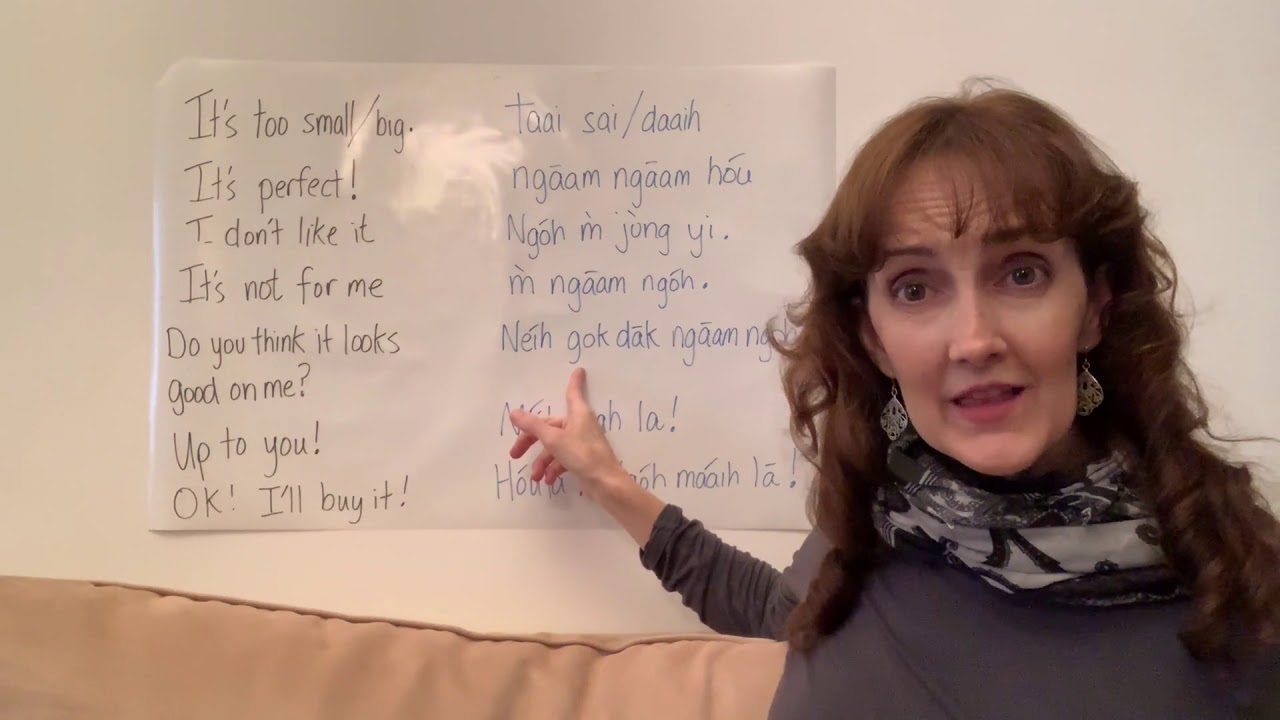 It's too small/big. taai sai/daaih
It's perfect! ngāam ngāam hóu
I don't like it Ngóh m̀ jùng yi.
It's not for me m̀ ngāam ngóh.
Do you think it looks Néih gok dāk ngāam
good on me?
Up to you! la!
OK! I'll buy it! máaih lā!